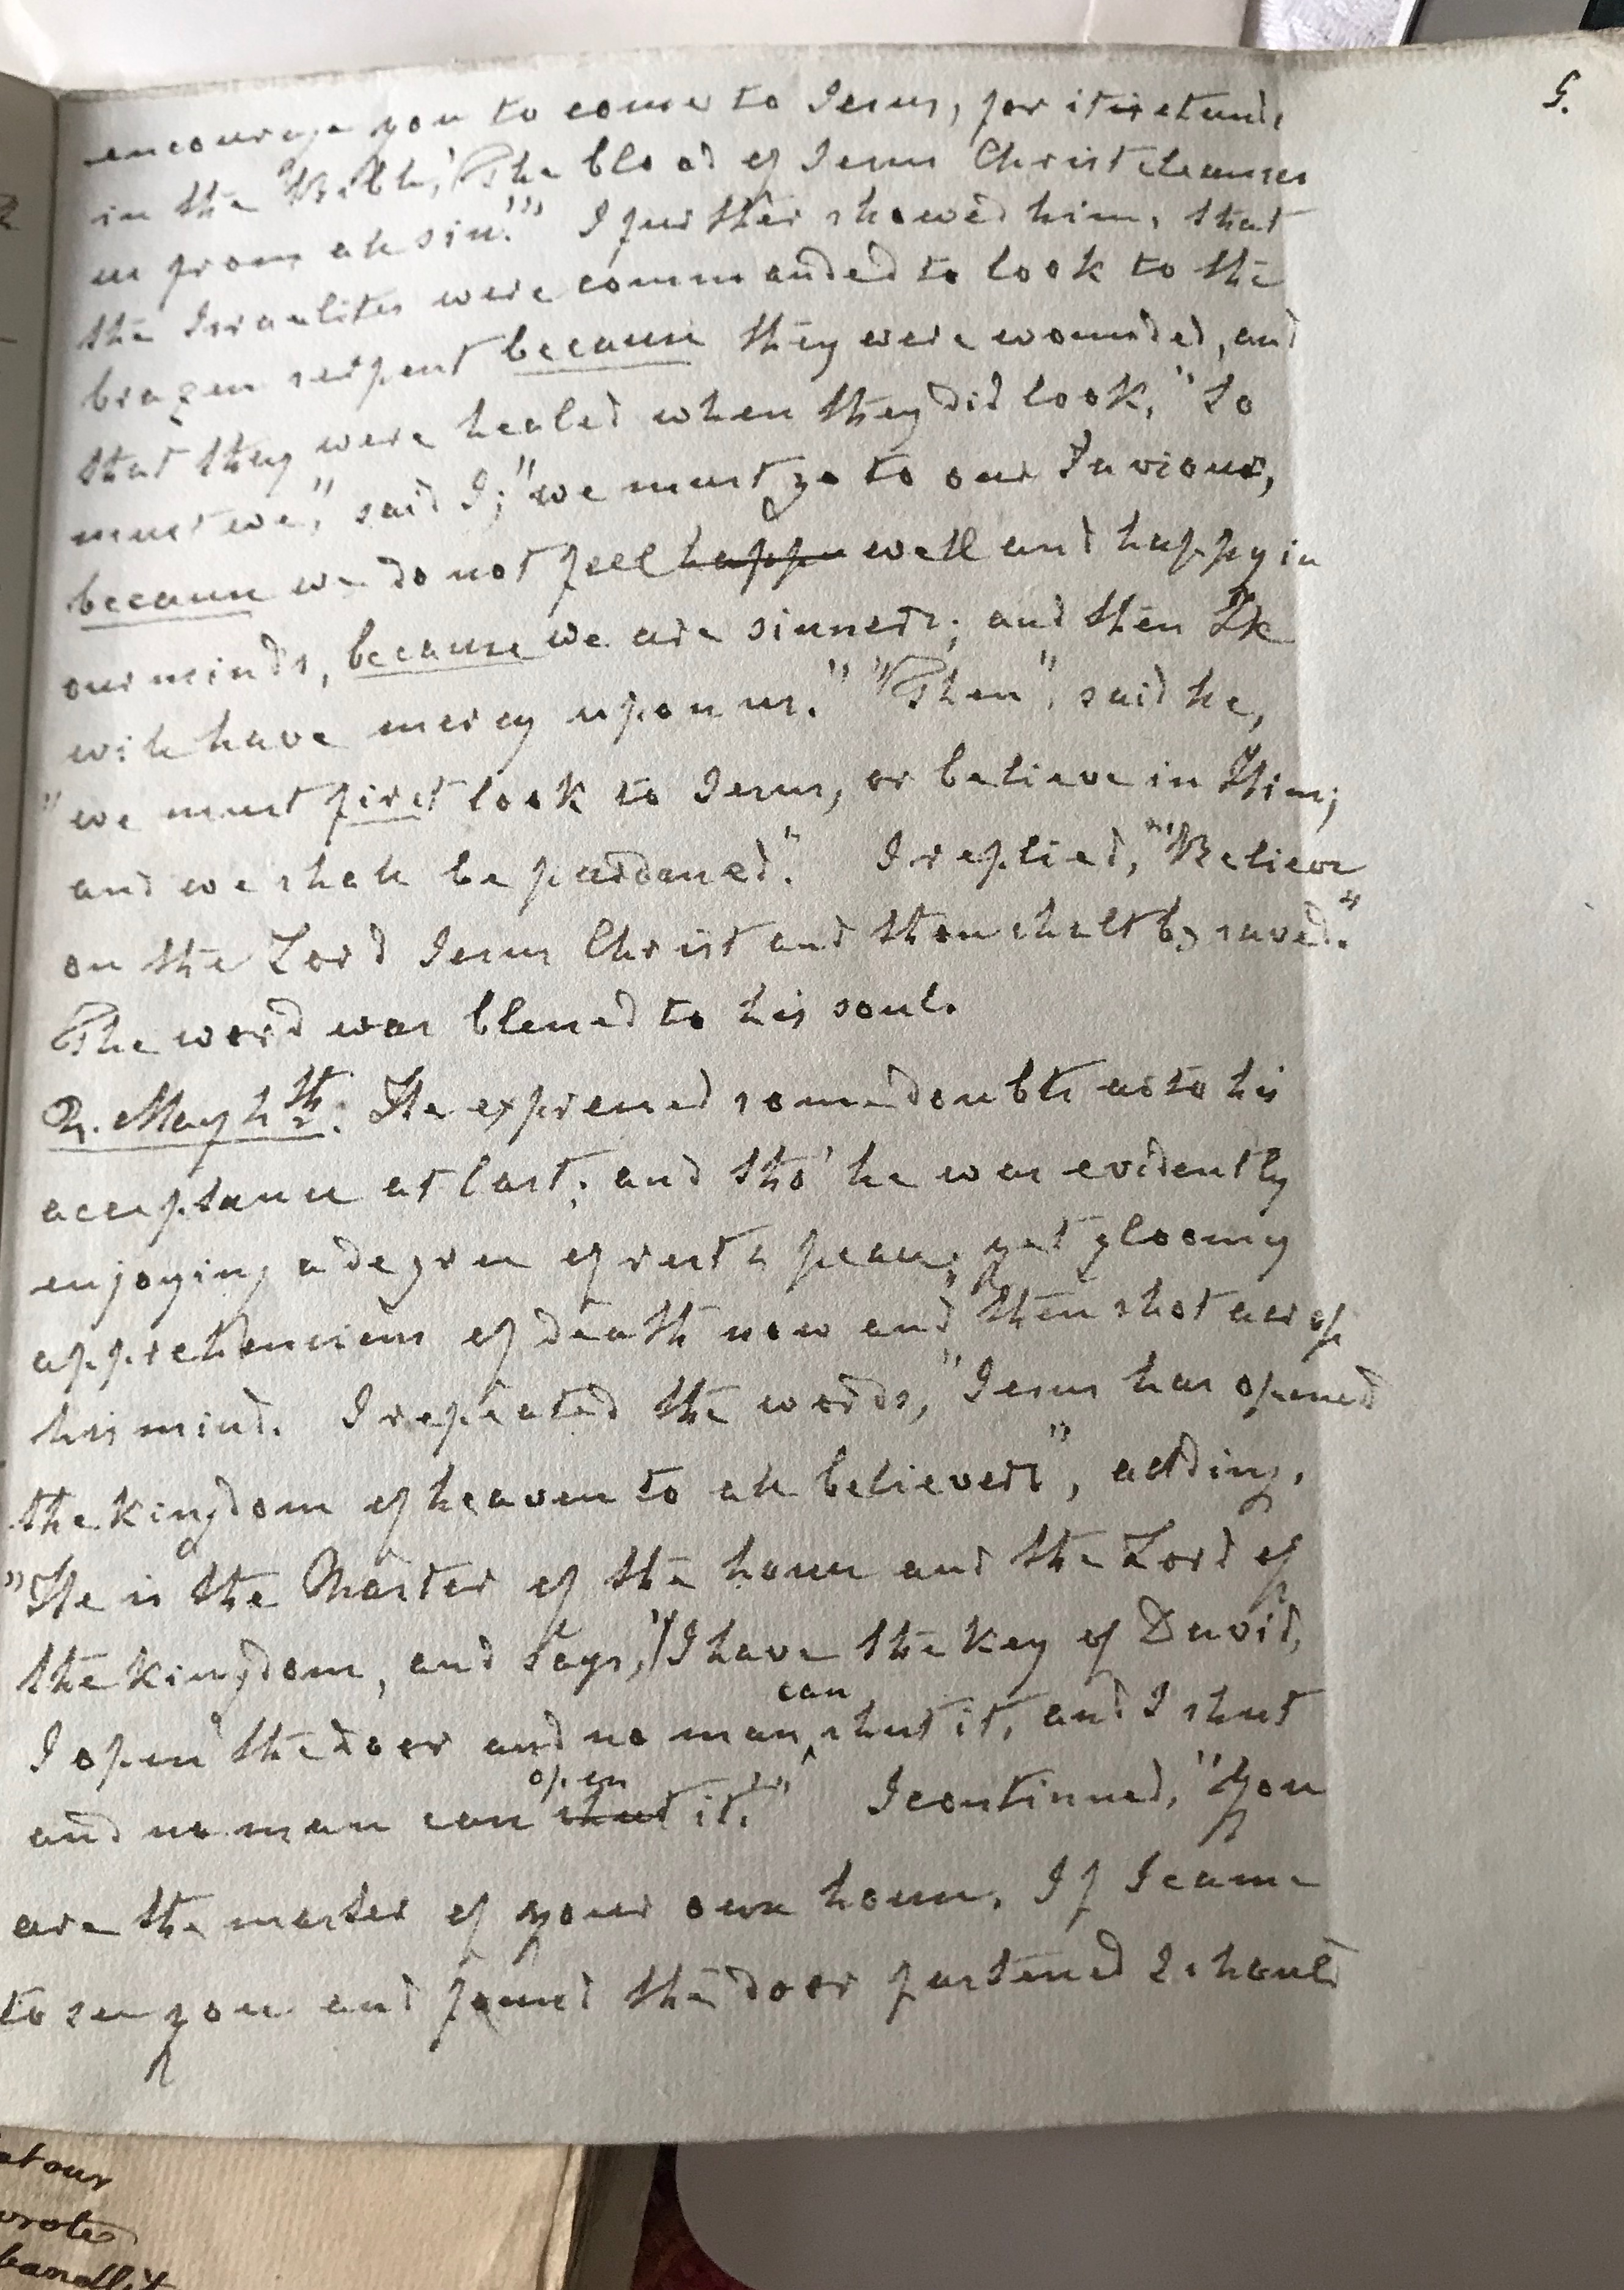 5.
encourage you to come to Jesus, for it stands
in the Bible, 'The blood of Jesus Christ cleanses
us from all sin.'" I further showed him, that
the Israelites were commanded to look to the
brazen serpent because they were wounded, and
that they were healed when they did look, "So
must we," said I; "we must go to our Saviour,
because we do not feel happy well and happy in
our minds, because we are sinners; and then He
will have mercy upon us." "Then", said he,
"we must first look to Jesus, or believe in Him;
and we shall be pardoned." I replied, "'Believe
on the Lord Jesus Christ and thou shalt be saved.'"
The word was blessed to his soul.
May th: He expressed some doubts as to his
acceptance at last; and tho' he was evidently
enjoying a degree of rest & peace, yet gloomy
apprehensions of death now and then shot across
his mind. I repeated the words, "Jesus has opened
the kingdom of heaven to all believers", adding,
"He is the Master of the house and the Lord of
the kingdom, and says, 'I have the key of David,
I open the door and no man can shut it, and I shut
and no man can shut open it.'" I continued, "You
are the master of your own house, If I came
to see you and found the door fastened I should
atour
wrote